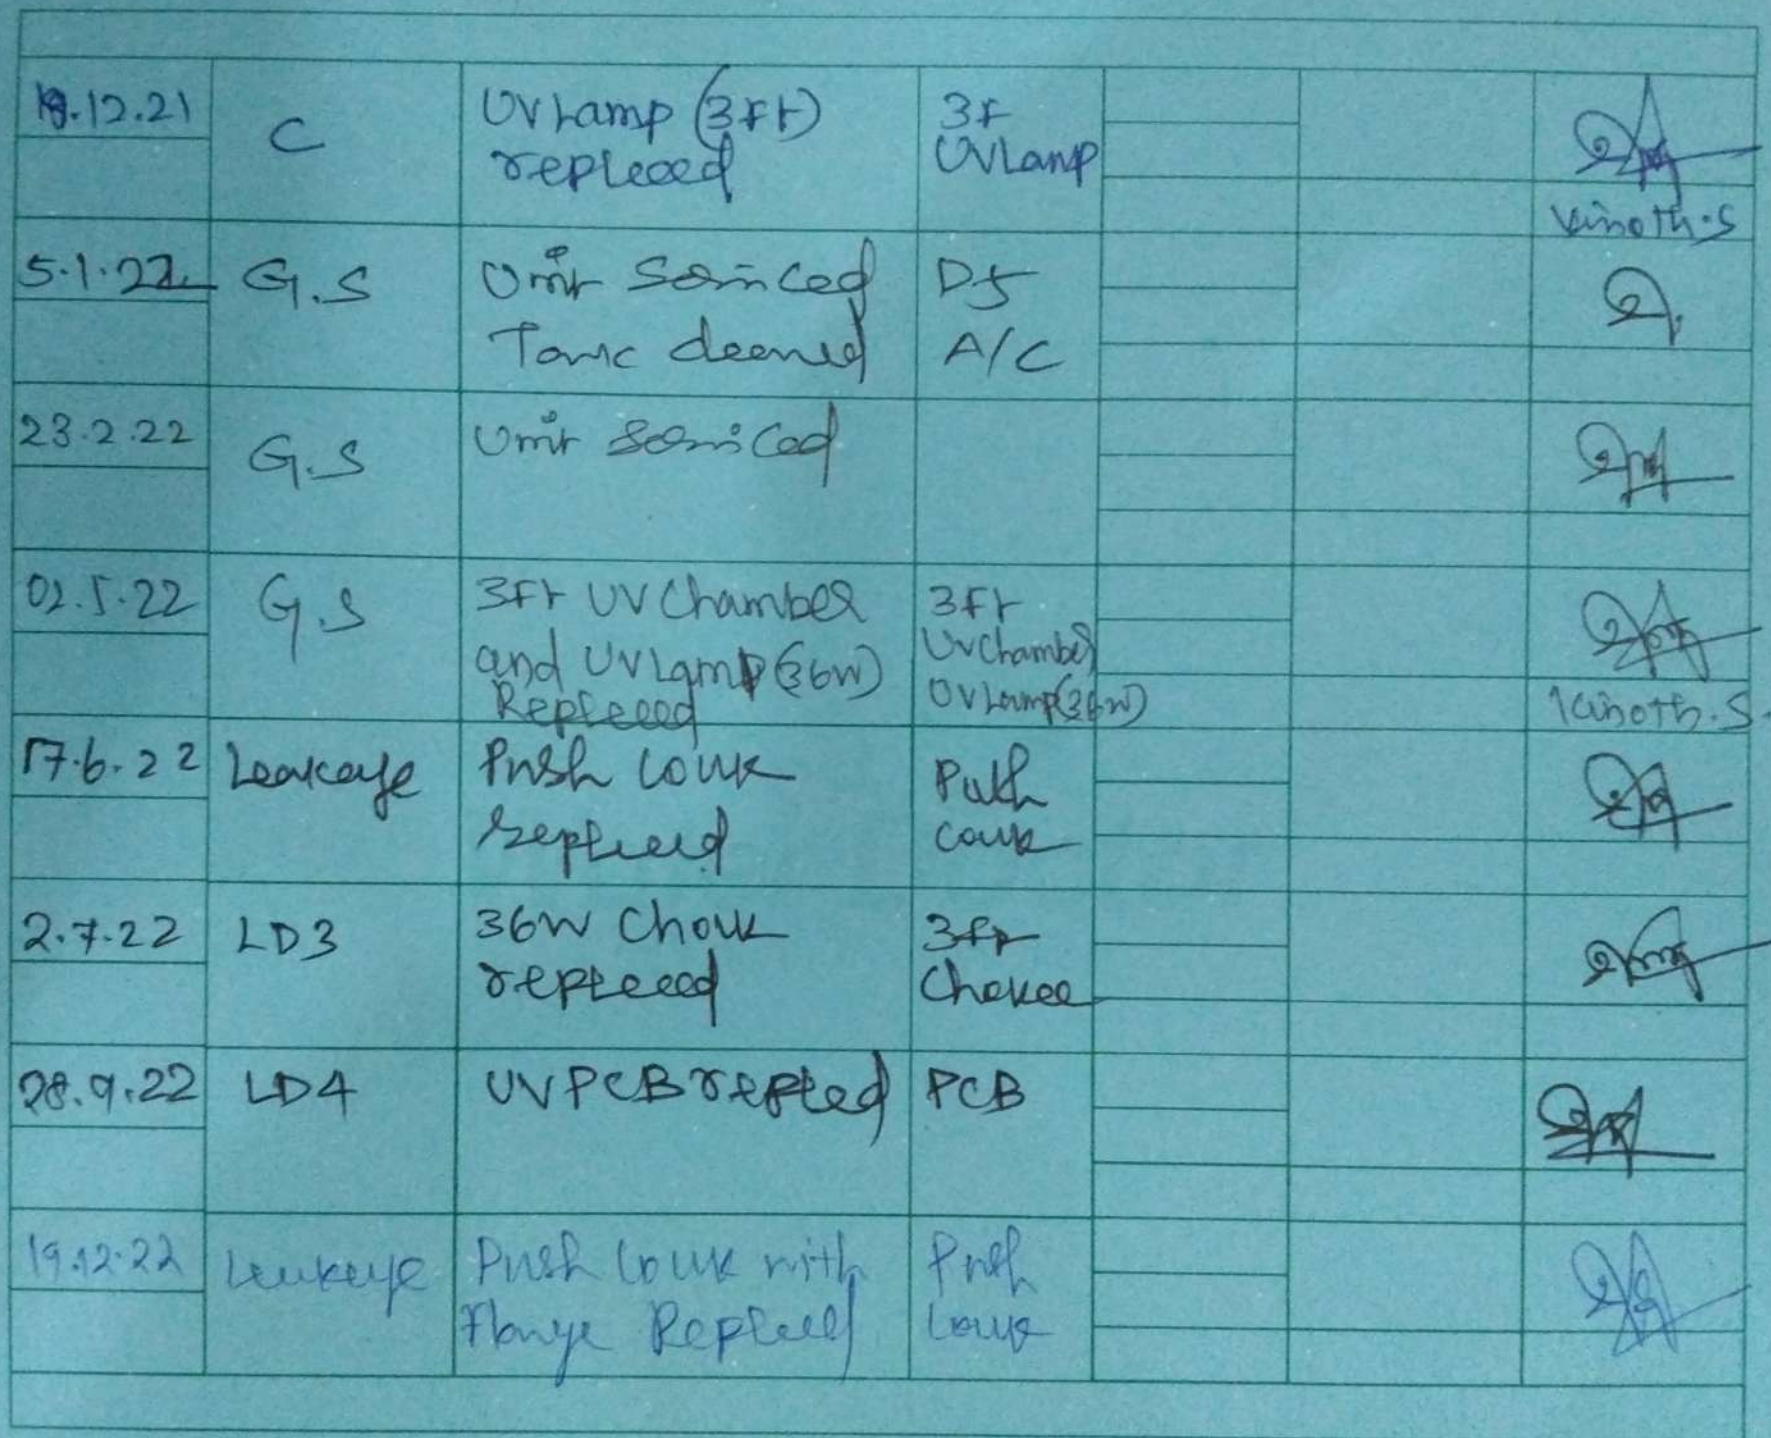 .12.21
C
UV Lamp (3Ft)
replaced
3F
UV Lamp
Vinoth.S
5.1.22
G.S
Unit Serviced
Tank cleaned
D5
A/C
23.2.22
G.S
Unit Serviced
02.5.22
G.S
3Ft UV Chamber
and UV Lamp (36W)
Replaced
3Ft
UV Chamber
UV Lamp (36W)
Vinoth.S
17.6.22
Leakage
Push Couk
replaced
Push
Couk
2.7.22
LD3
36W Chouk
replaced
3Ft
Chokee
28.9.22
LD4
UV PCB repled
PCB
19.12.22
Leakage
Push Couk with
Flange Replaced
Push
Couk